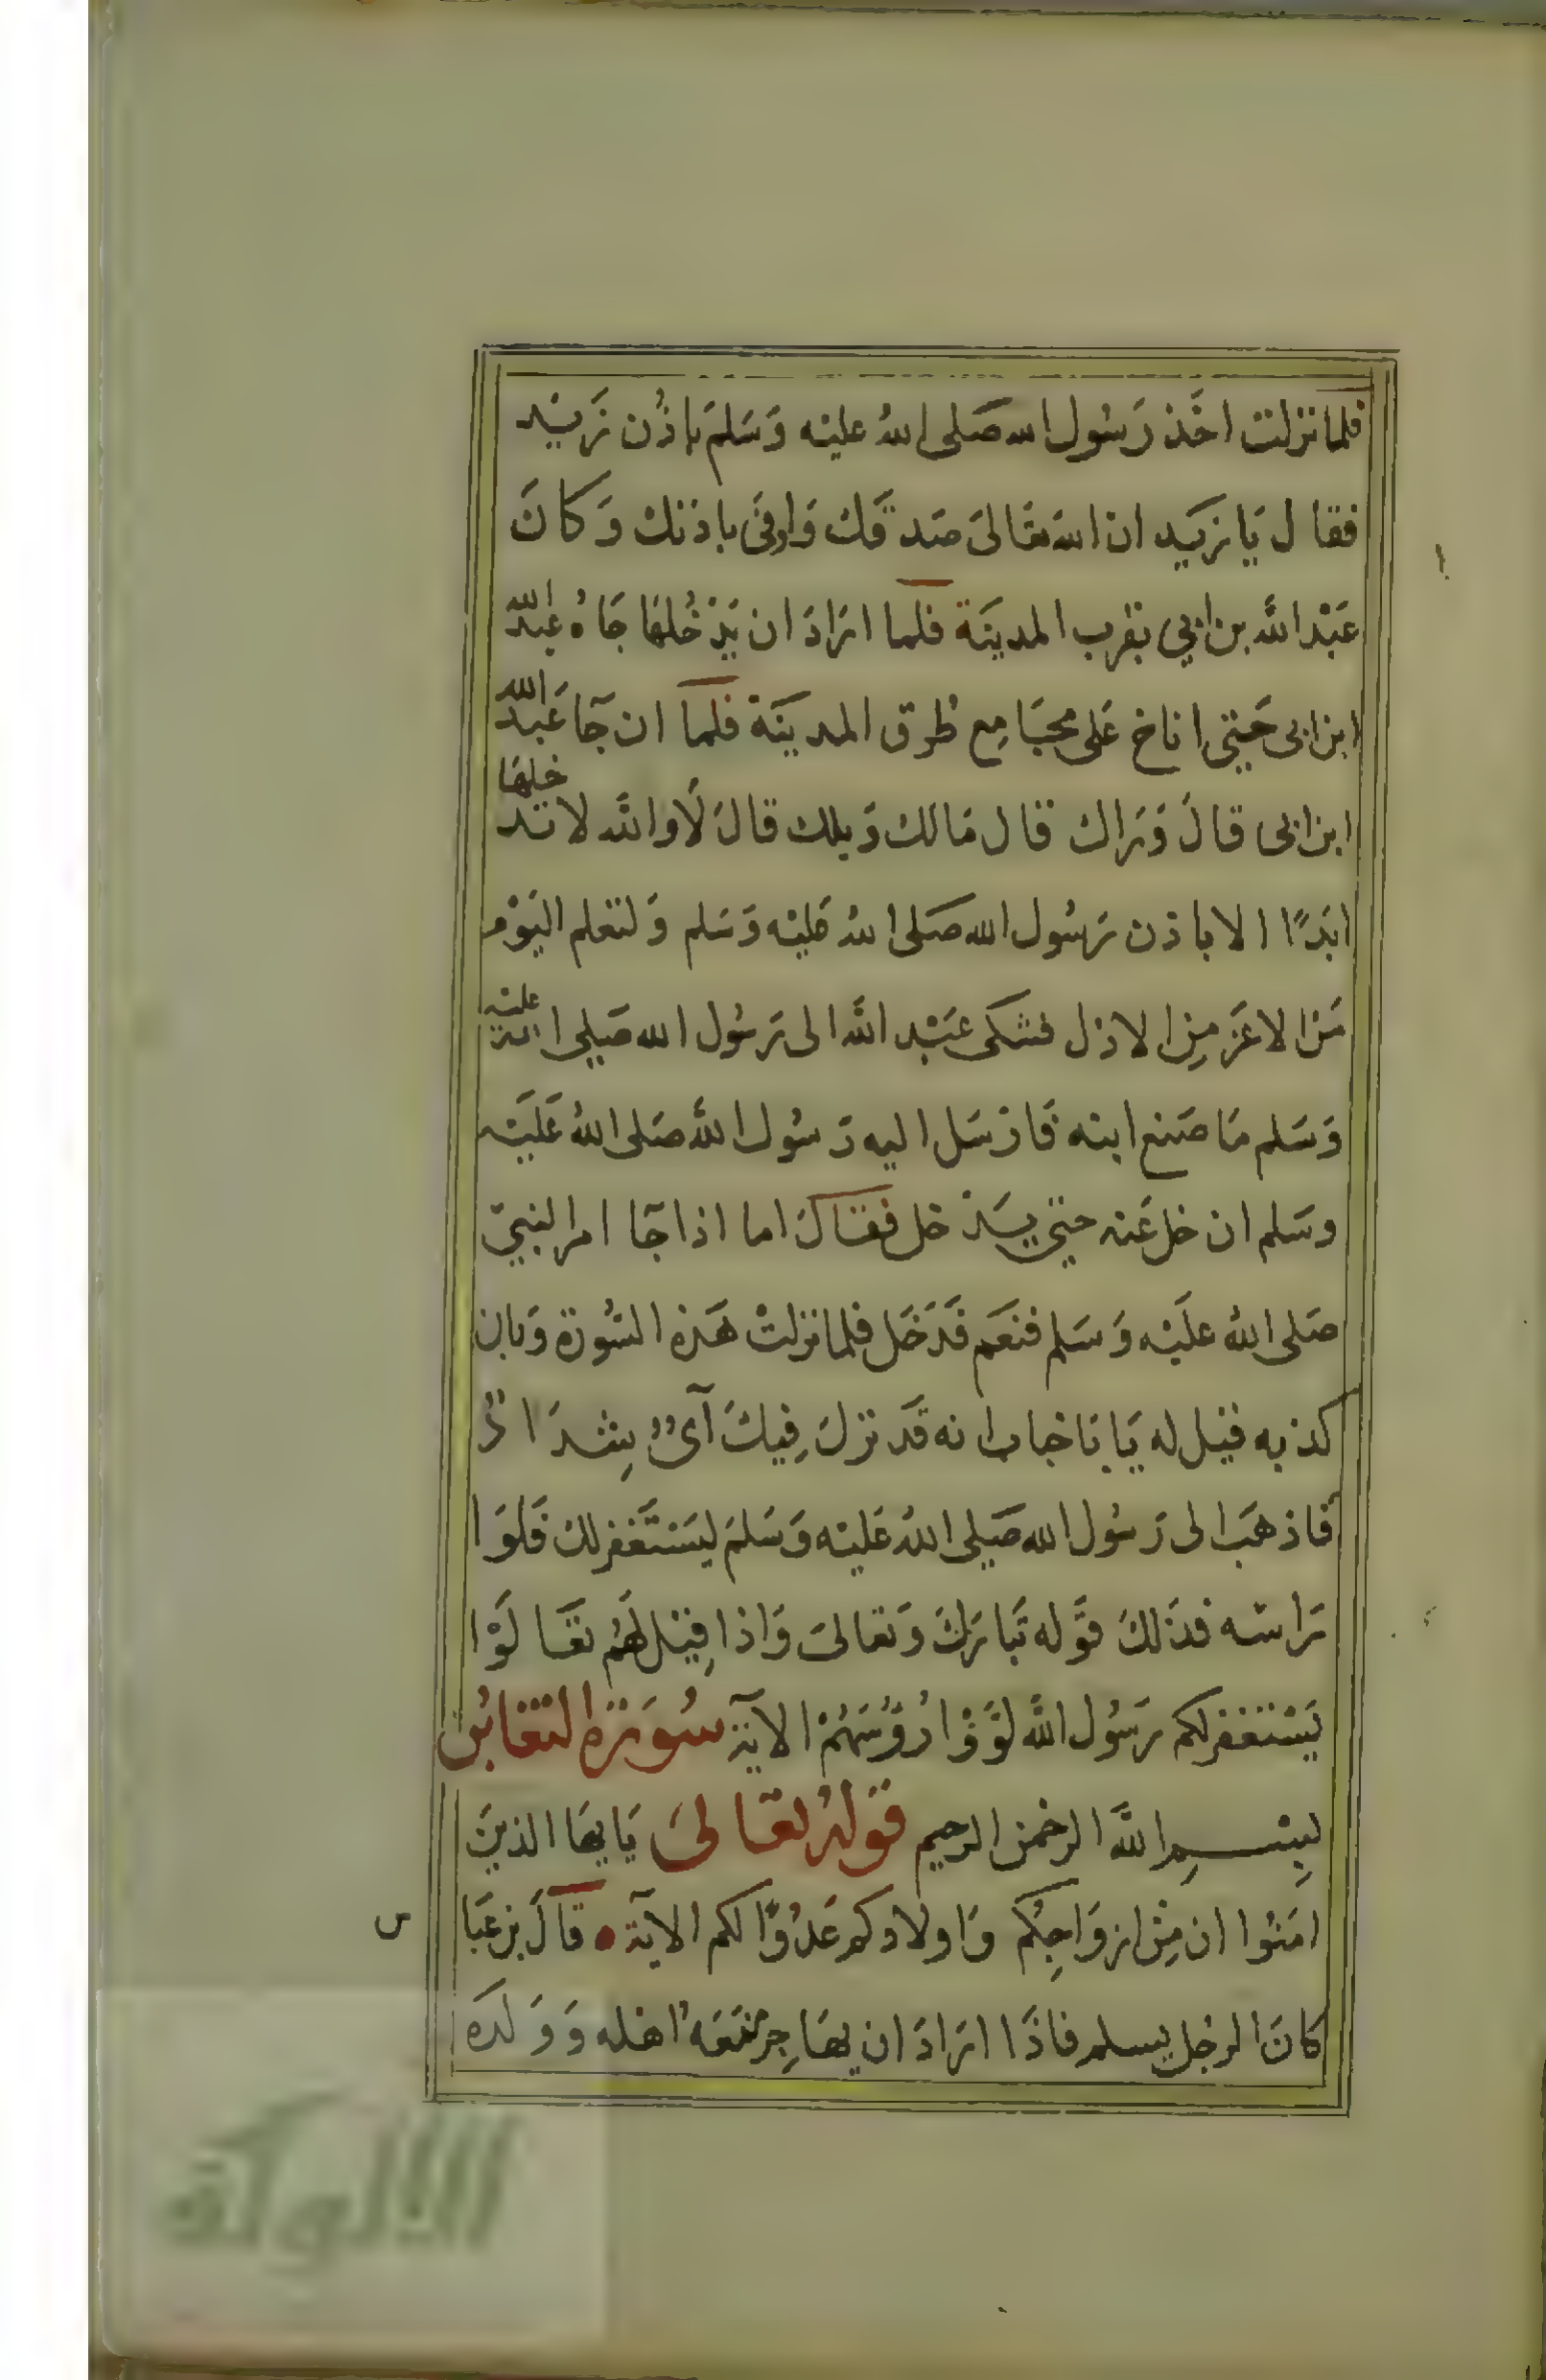 فلما نزلت اخَذ رَسُول الله صَلى اللهُ عليْه وَسَلمَ باذُن زَيْد
فقال يَا زيَد ان الله تعَالىَ صَدقَك وَاوفىَ باذنك وَكانَ
عَبْد اللَّه بن ابي بقرب المدينَة فلما ارَادَ ان يَدْخُلهَا جَاهُ عبْد اللَّه
ابن ابى حَتي اناخ عَلى مجَامِع طرق المدينَة فلمَا ان جَآ عَبد اللَّه
ابن ابى قالَ وَرَاك قال مَالك وَيلك قالَ لَا واللَّه لا تدخلهَا
ابَدًا الا باذن رَسُول الله صَلى اللهُ عَليْه وَسَلم وَلتعلم اليَوْم
مَن الاعَز مِن الاذل فشكى عَبْد اللَّه الى رَسُول الله صَلي الله عليْه
وَسَلم مَا صَنع ابنه فَارْسَل اليه رَسُول اللَّه صَلى اللهُ عَليَه
وسَلم ان خل عَنه حتي يَدْخل فقالَ اما اذا جَآ امر النبيّ
صَلى اللهُ علَيْه وَسَلم فنعَم فَدَخَل فلما نزلتْ هَذه السُّورَة وَبان
كذبه قيْل له يَا بَا خباب انه قَد نزلَ فِيكَ آىٌ شِدَادٌ
فاذهَب الى رَسُول الله صَلي اللهُ عَليْه وَسَلمَ ليَسْتَغفر لك فَلوَا
رَاسَه فذَلكَ قَوله تَبارَكَ وَتعالىَ وَاذا قِيْل لهُم تعَالَوْا
يَسْتغفر لكم رَسُول اللَّه لوَّوْا رُؤُسَهُمْ الاية سُورَة التغابُن
بِسْــمِ اللَّه الرحْمن الرحيم قوله تعَالىَ يَا ايهَا الذينَ
امَنُوا ان مِنْ ازوَاجِكُم وَاولادكم عَدُوًّا لكم الاية قالَ بن عَبَا
س
كانَ الرجل يسلم فاذَا ارَادَ ان يهَاجِر مَنَعَهُ اهْله وَوَلدَه
الألوكة